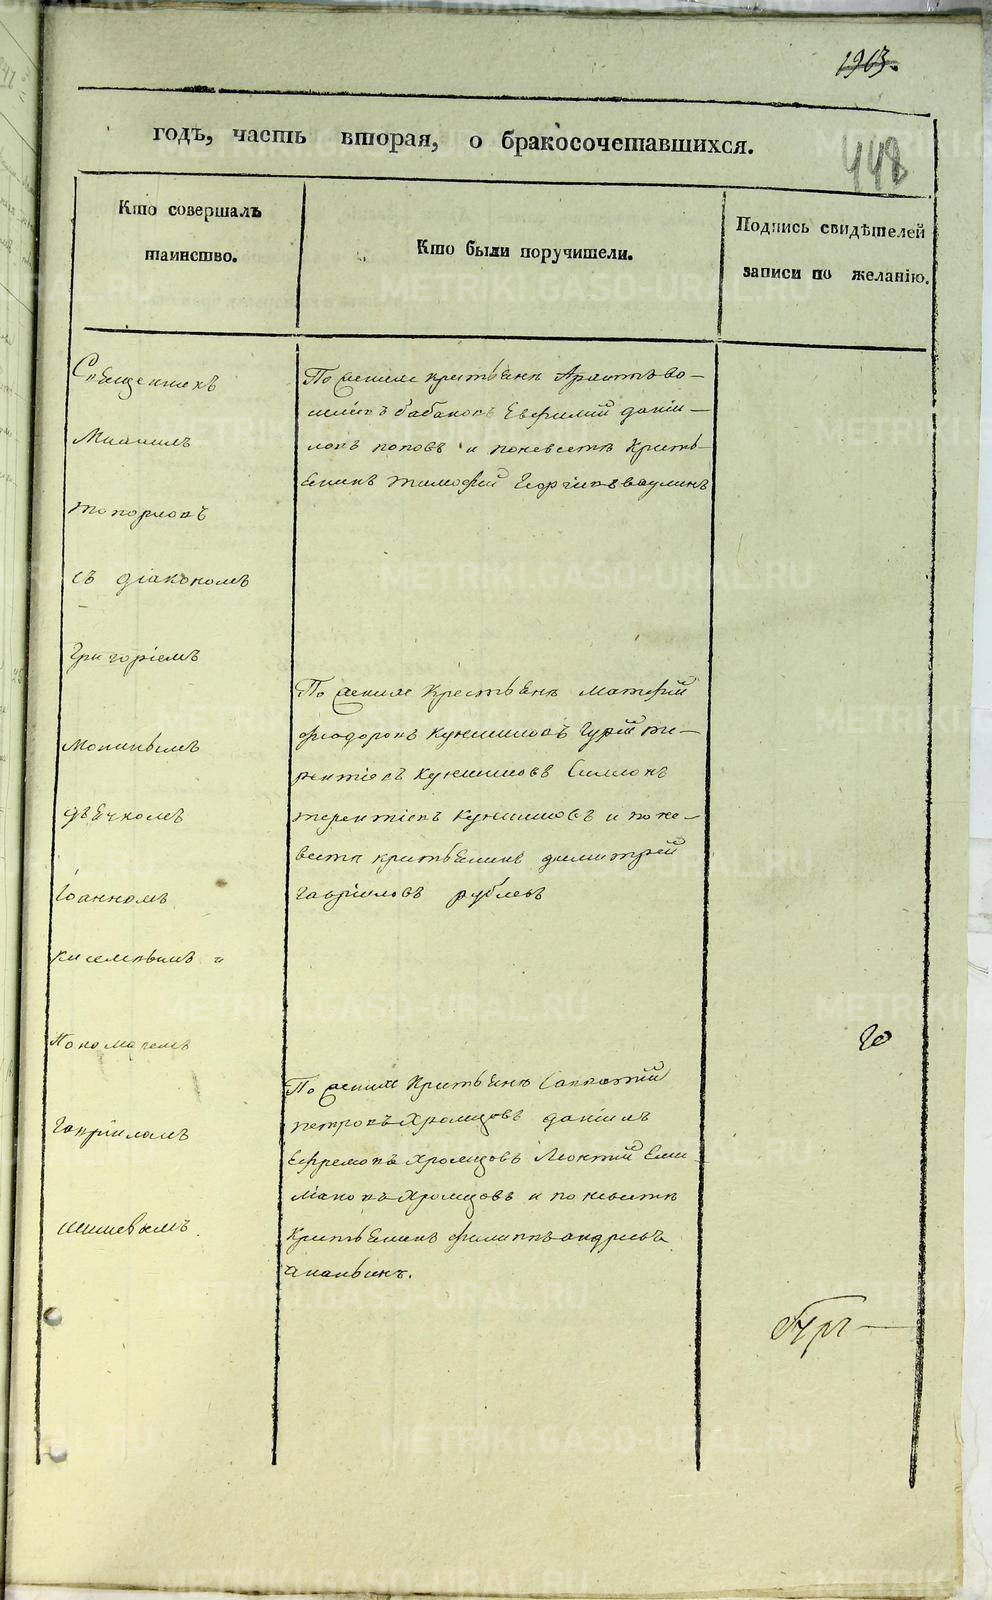 1963.
448
годъ, часть вторая, о бракосочетавшихся.
Кто совершалъ
таинство.
Кто были поручители.
Подпись свидѣтелей
записи по желанію.
Священникъ
Михаилъ
Топорковъ
съ діакономъ
Григоріемъ
дьячкомъ
Іоанномъ
и
Пономаремъ
Гавріиломъ
Шишевымъ
По женихе
Бабановъ Евфимий Даніи-
ловъ Поповъ и по невесте Кресть-
янинъ Тимофей Георгіевъ Ваулинъ
По женихе Крестьяне Матфей
Феодоровъ Кукшиновъ Гурій Те-
рентіевъ Кукшиновъ Симеонъ
Терентіевъ Кукшиновъ и по не-
весте крестьянинъ Димитрей
Гавриловъ Рублевъ
По женихе Крестьяне Савватий
Петровъ Хромцовъ Даніилъ
Ефремовъ Хромцовъ Леонтий
Хромцовъ и по невесте
Крестьянинъ Филиппъ Андреевъ
METRIKI.GASO-URAL.RU